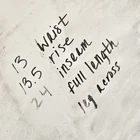 13 Waist
13.5 rise
24 inseam
full length
leg across